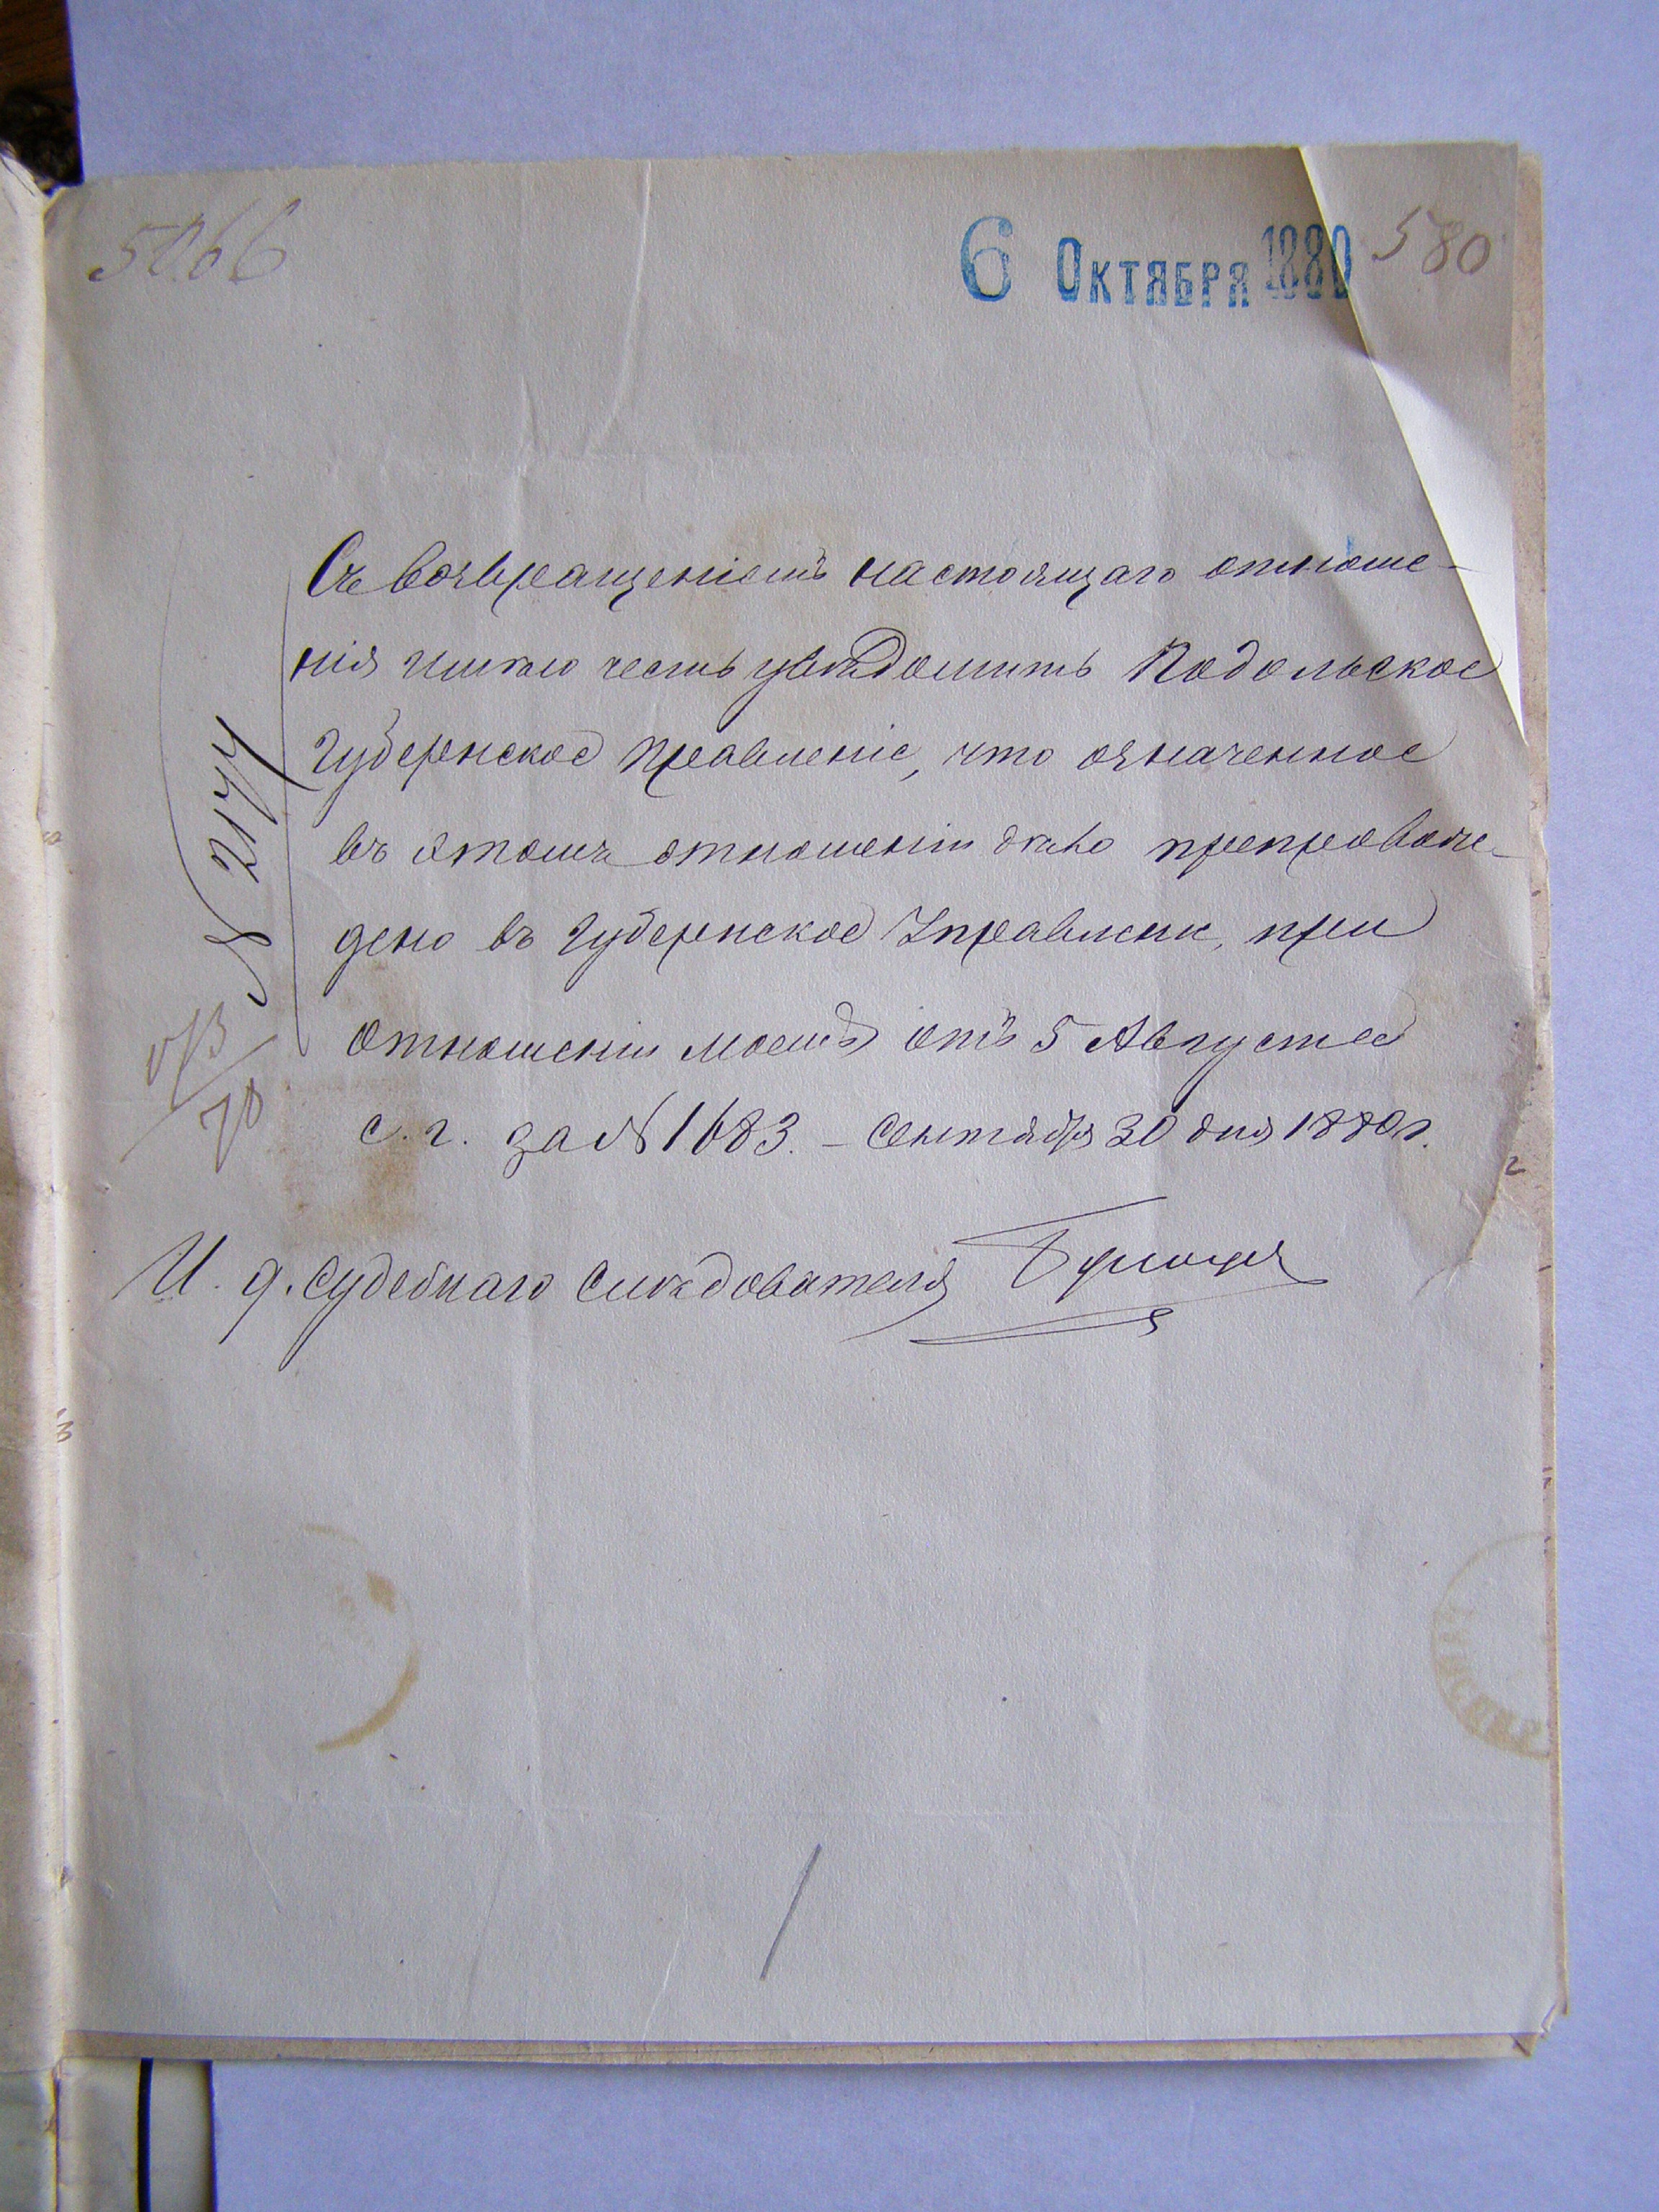 5066
6 Октября 1880
580
Съ возвращеніемъ настоящаго отноше-
нія имѣю честь увѣдомить Подольское
Губернское Правленіе, что означенное
въ этомъ отношеніи дѣло препровож-
дено въ Губернское Управленіе, при
отношеніи моемъ отъ 5 Августа
с. г. за № 1683. – Сентября 30 дня 1880 г.
И. д. Судебнаго Слѣдователя
№ 2177